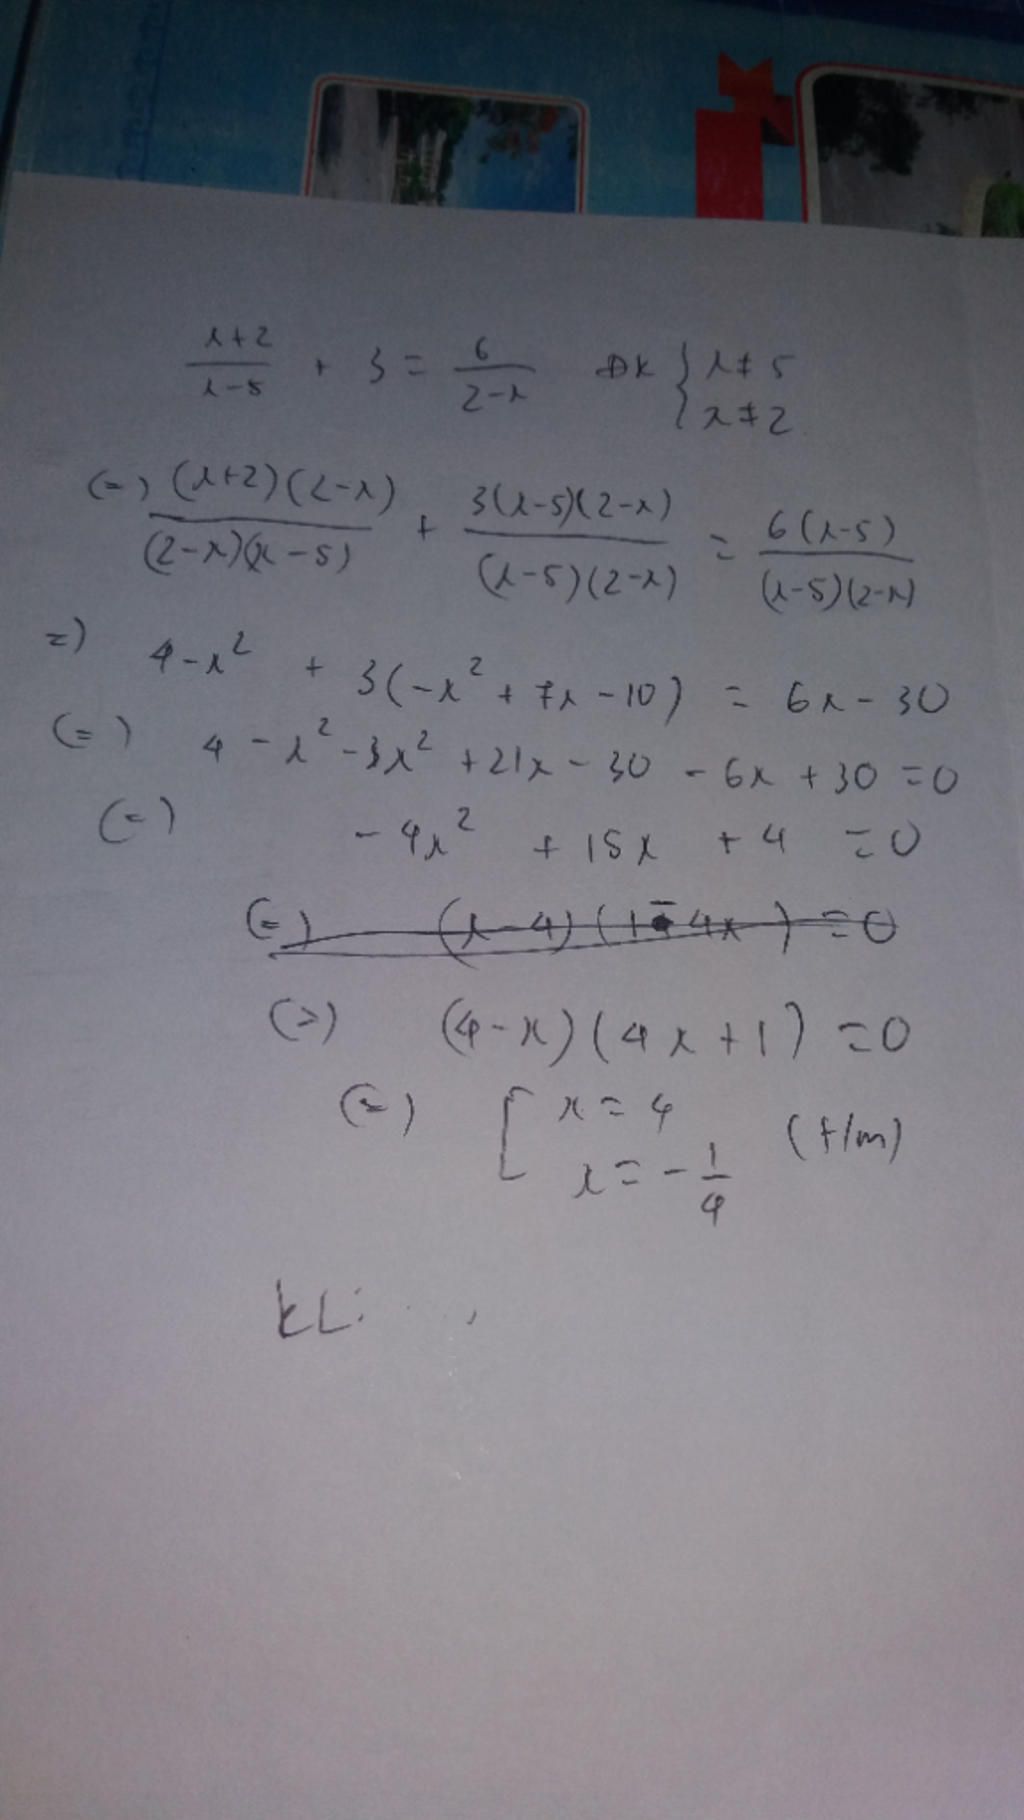 x+2/x-5 + 3 = 6/2-x ĐK { x≠5
x≠2
(=) (x+2)(2-x)/(2-x)(x-5) + 3(x-5)(2-x)/(x-5)(2-x) = 6(x-5)/(x-5)(2-x)
=) 4-x² + 3(-x²+7x-10) = 6x-30
(=) 4-x²-3x²+21x-30-6x+30=0
(=) -4x²+15x+4=0
(=) (4-x)(4x+1)=0
(=) [ x=4
x=-1/4 (t/m)
KL: